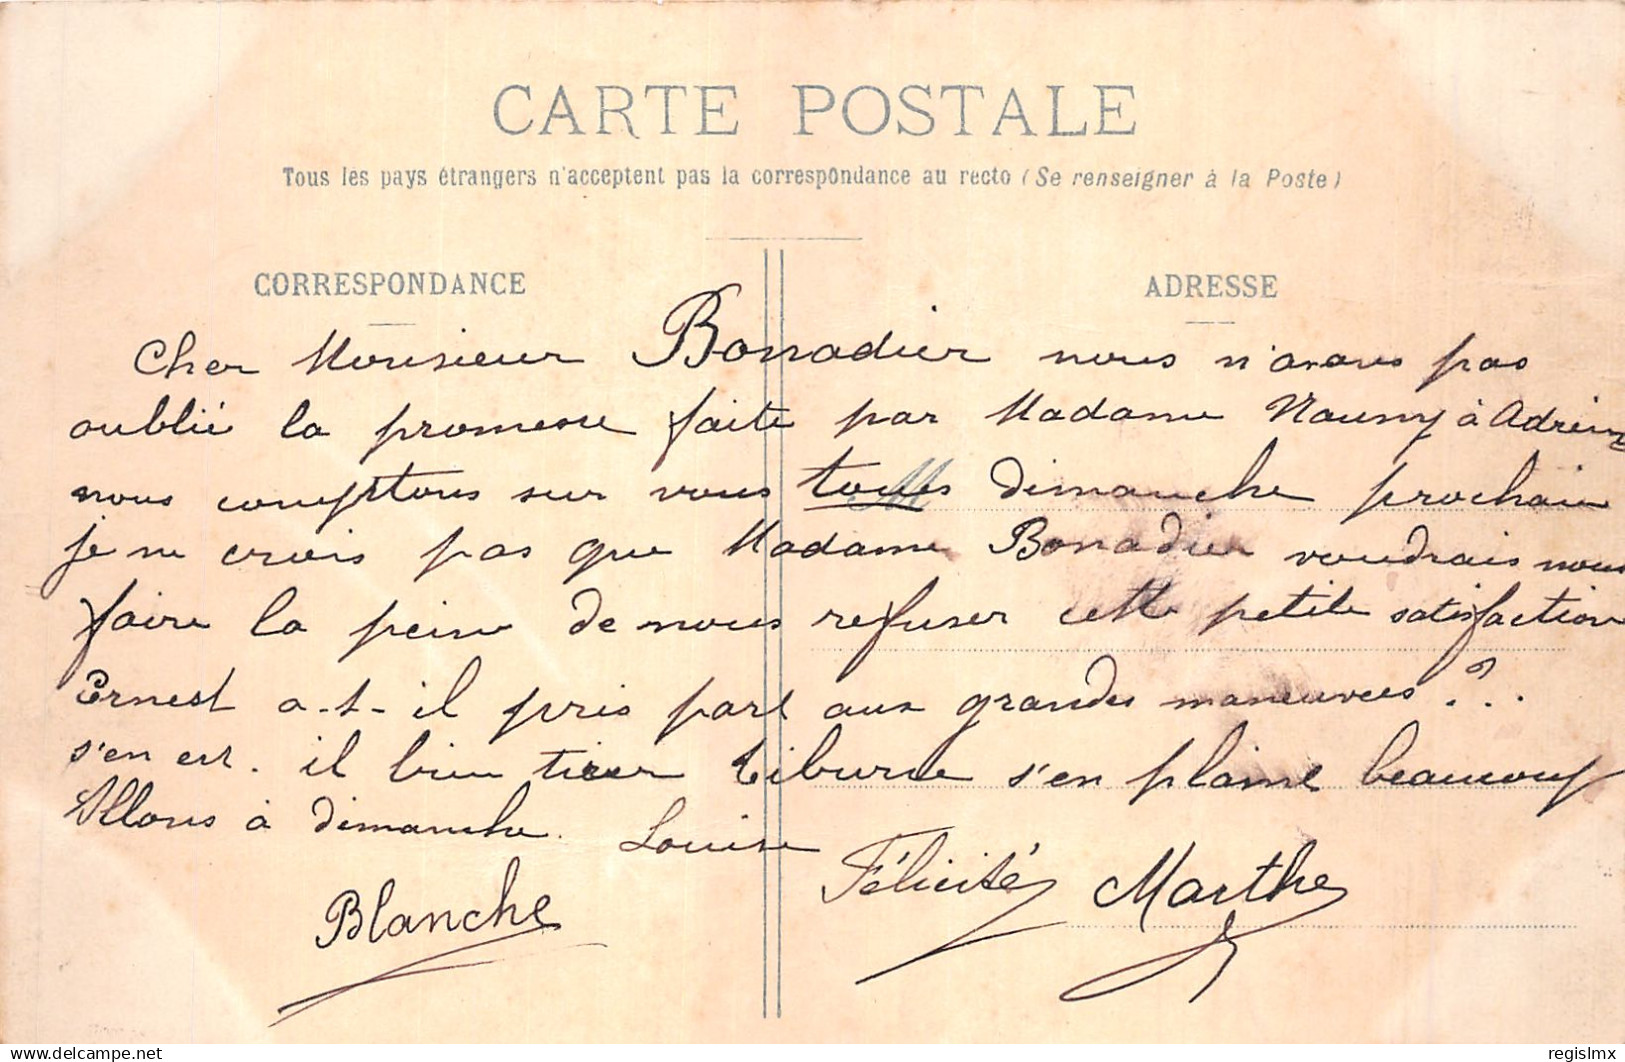 CARTE POSTALE
Tous les pays étrangers n'acceptent pas la correspondance au recto (Se renseigner à la Poste)
CORRESPONDANCE
ADRESSE
Cher Monsieur Bonnadier nous n'avons pas
oublié la promesse faite par Madame Naumy à Adrien
nous comptons sur vous tous dimanche prochain
je ne crois pas que Madame Bonadier voudrais nous
faire la peine de nous refuser cette petite satisfaction
Ernest a-t-il pris part aux grandes maneuvres?..
s'en est. il bien tirer Tiburce s'en plaint beaucoup
Allons à dimanche. Louise
Félicité Marthe
Blanche
regislmx
www.delcampe.net